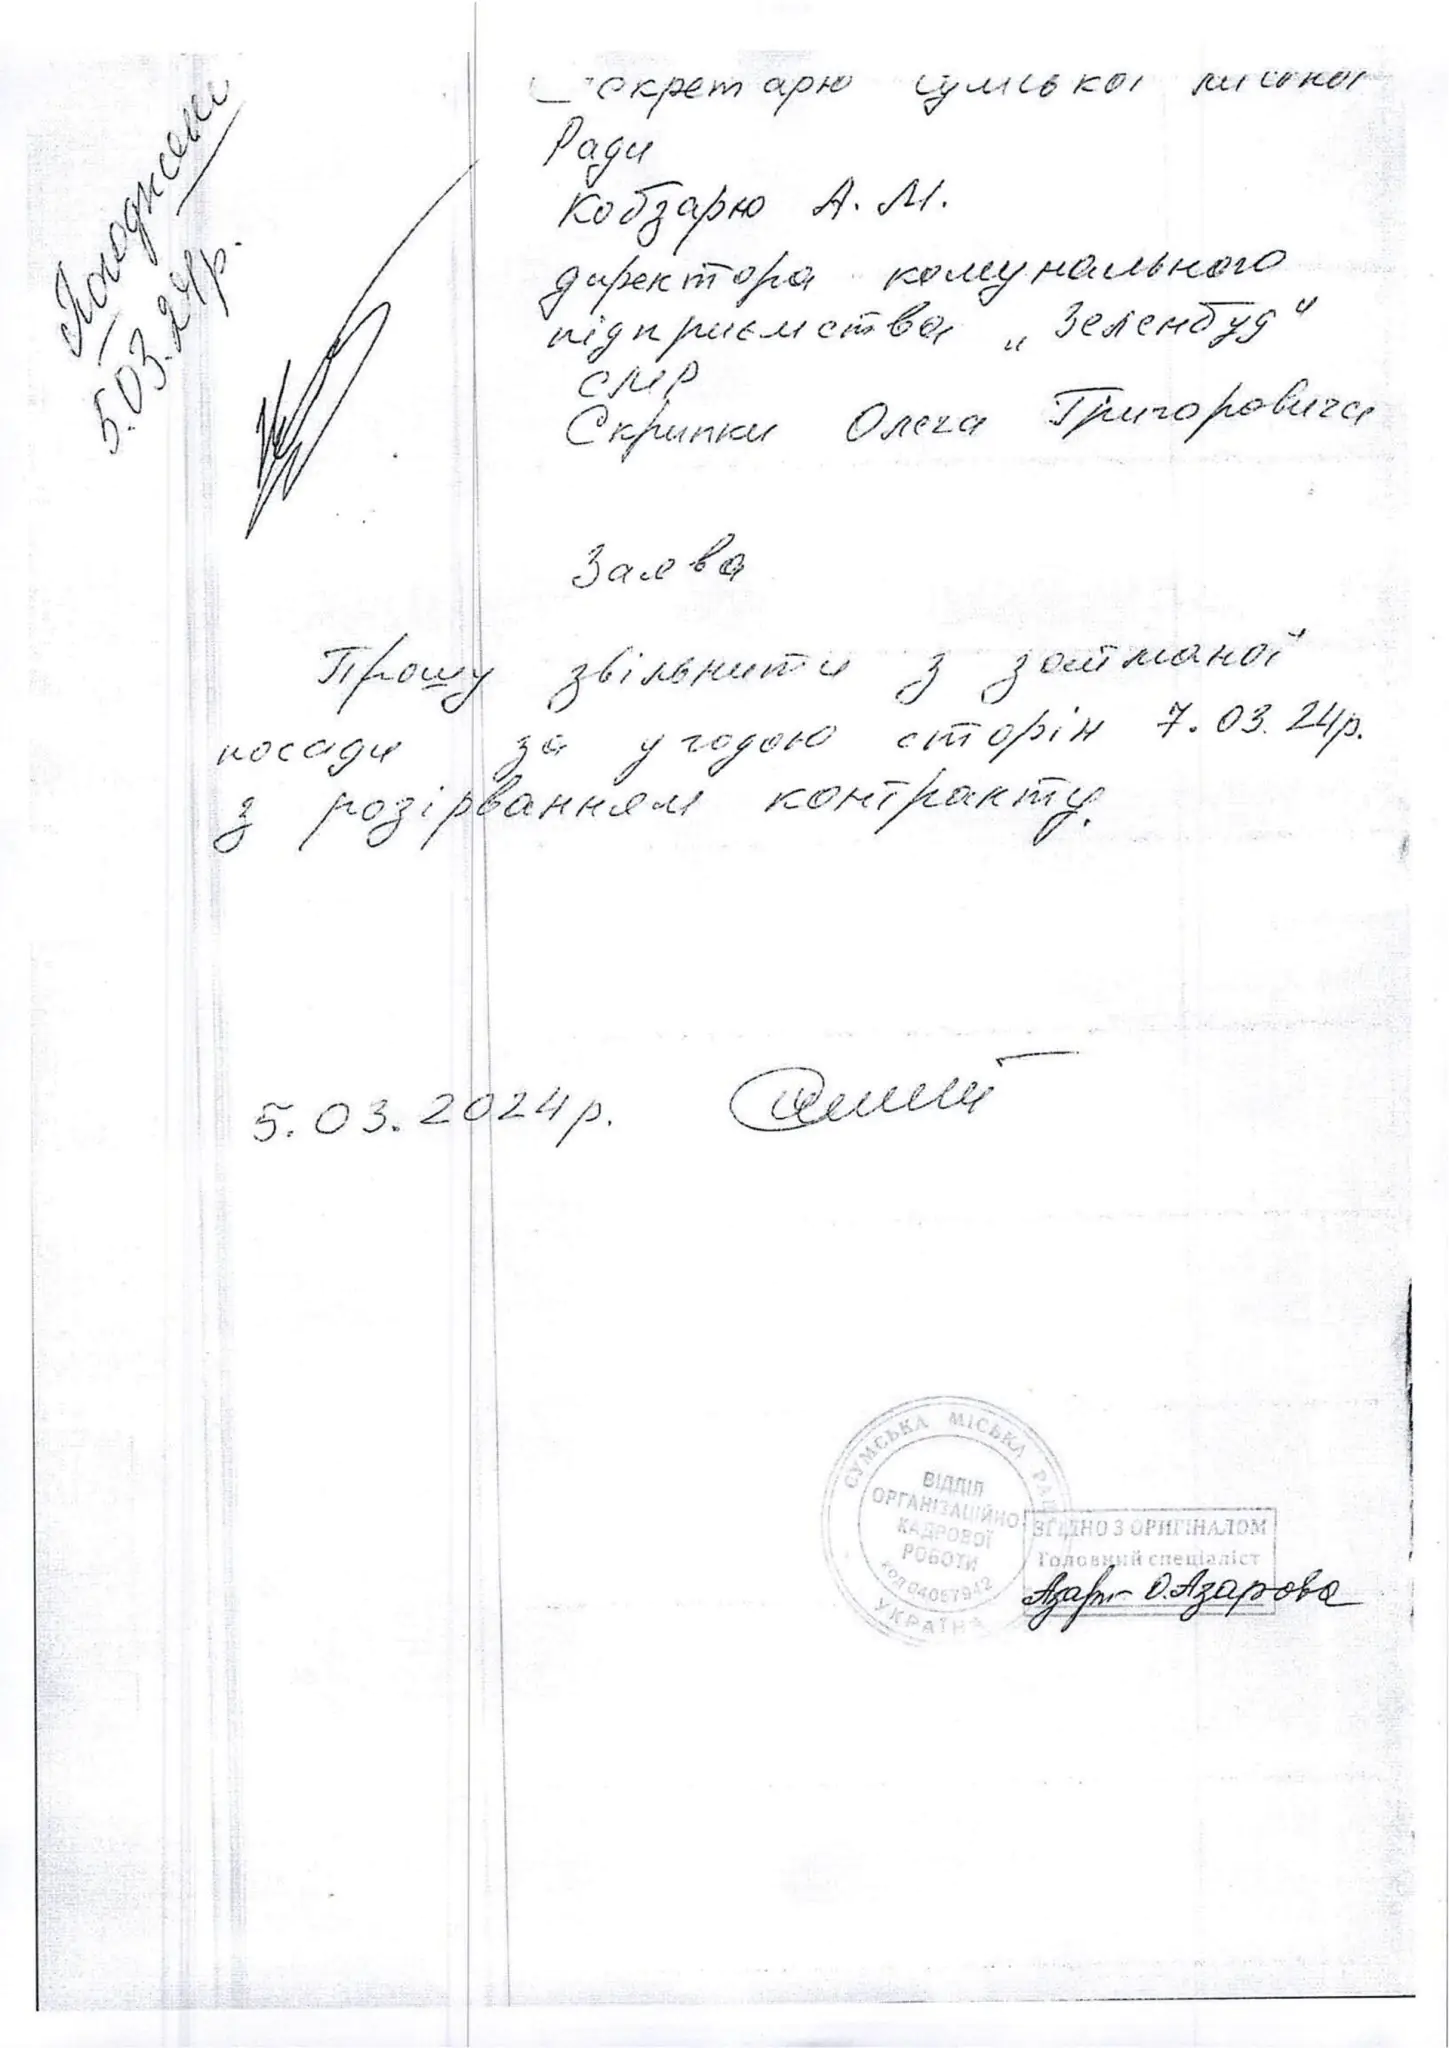 Погоджено
5.03.24р.
Секретарю Сумської міської
Ради
Кобзарю А. М.
директора комунального
підприємства „Зеленбуд“
СМР
Скрипки Олега Григоровича
Заява
Прошу звільнити з займаної
посади за угодою сторін 7.03.24р.
з розірванням контракту.
5.03.2024р.
СУМСЬКА МІСЬКА РАДА
ВІДДІЛ
ОРГАНІЗАЦІЙНО
КАДРОВОЇ
РОБОТИ
код 04057942
УКРАЇНА
ЗГІДНО З ОРИГІНАЛОМ
Головний спеціаліст
О.Азарова